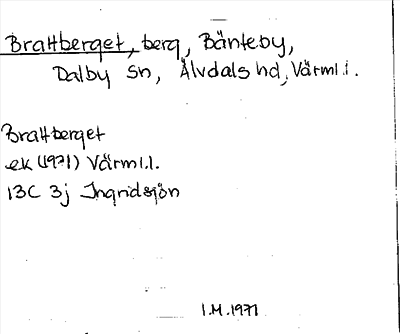 Brattberget, berg, Bänteby,
Dalby sn, Älvdals hd, Värml.l.
Brattberget
ek (1971) Värml.l.
13C 3j Ingridsjön
I.M.1971